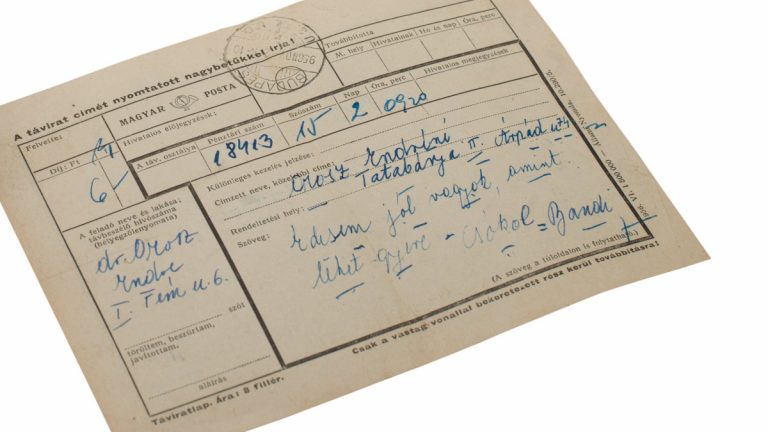 A távirat címét nyomtatott nagybetükkel írja!
Továbbította
M. hely Hivatalnak Hó és nap Óra, perc
BUDAPEST
MAGYAR POSTA
Felvette:
Díj: Ft
6-
Hivatalos előjegyzések:
A táv. osztálya Pénztári szám Szószám Nap Óra, perc Hivatalos megjegyzések
18413 15 2 0920
Különleges kezelés jelzése:
Címzett neve, közelebbi címe:
Orosz Endréné
Tatabánya II. Árpád u.
Rendeltetési hely:
Szöveg:
Édesem jól vagyok, amint
lehet gyere - Csókol = Bandi
(A szöveg a túloldalon is folytatható.)
A feladó neve és lakása,
távbeszélő hívószáma
(bélyegzőlenyomata)
dr. Orosz
Endre
I. Fém u. 6.
szót
töröltem, beszúrtam,
javítottam,
aláírás
Csak a vastag vonallal bekeretezett rész kerül továbbításra!
Távíratlap. Ára: 8 fillér.
Állami Nyomda. 10.200/5.
1956. VI. 1 800 000